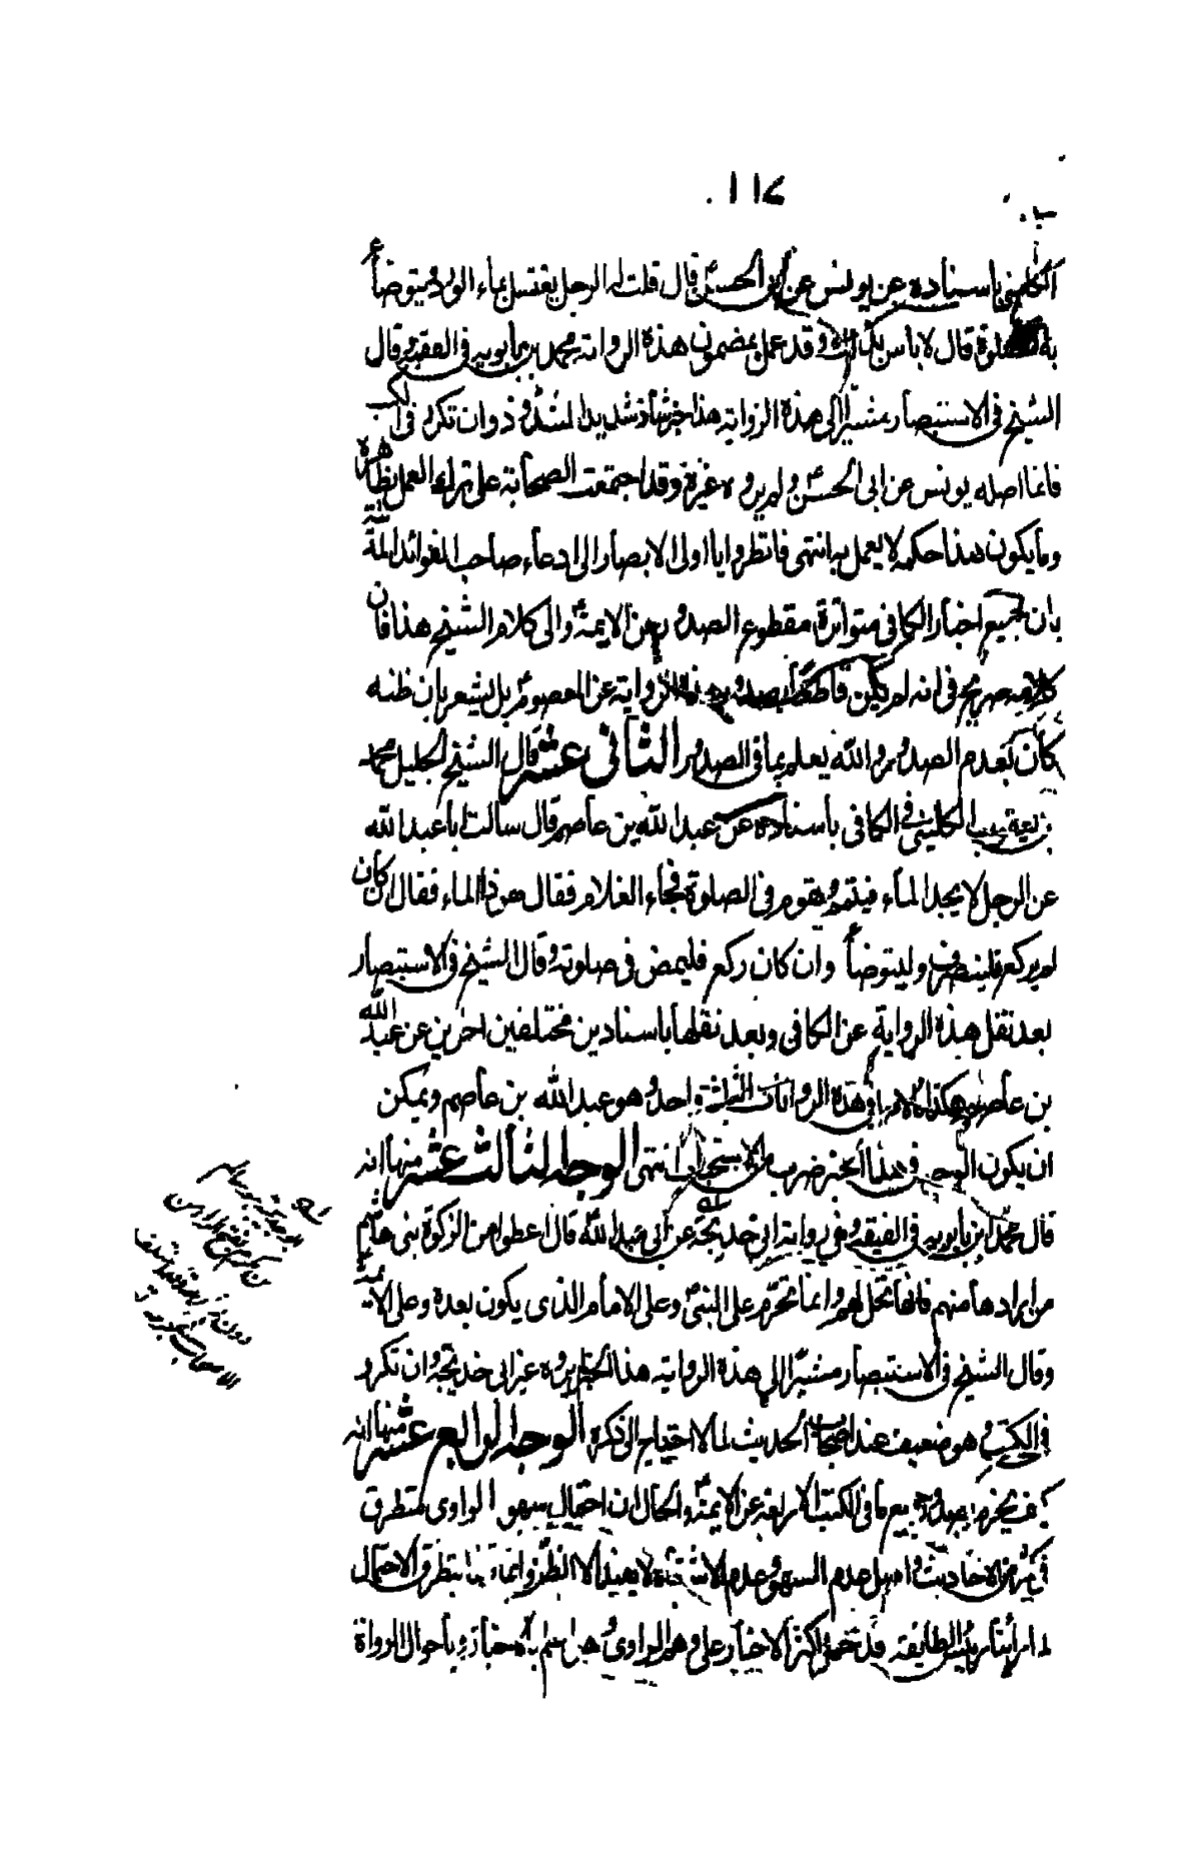 ١١٤
الكليني باسناده عن يونس عن ابى الحسنؑ قال قلت له الرجل يغتسل بماء الورد ويتوضأ
به للصلوة قال لا بأس بذلك وقد عمل بمضمون هذه الرواية محمد بن بابويه فى الفقيه وقال
الشيخ فى الاستبصار مشيرا الى هذه الرواية هذا خبر شاذ شديد الشذوذ وان تكرر فى الكتب
فانما اصله يونس عن ابى الحسنؑ ولم يروه غيره وقد اجتمعت الصحابة على ترك العمل بظاهره
وما يكون هذا حكمه لا يعمل به انتهى فانظروا يا اولى الابصار الى ادعاء صاحب الفوائد المدنية
بان جميع اخبار الكافى متواترة مقطوع الصدور عن الايمةؑ والى كلام الشيخ هذا فان
كلامه صريح فى انه لم يكن قاطعا بصدور هذه الرواية عن المعصومؑ بل يشعر بان ظنه
كان بعدم الصدور والله يعلم بما فى الصدور الثانى عشر قال الشيخ الجليل محمد
بن يعقوب الكلينى فى الكافى باسناده عن عبد الله بن عاصم قال سالت ابا عبد الله
عن الرجل لا يجد الماء فيتمم ويقوم فى الصلوة فجاء الغلام فقال هوذا الماء فقال ان كان
لم يركع فلينصرف وليتوضأ وان كان ركع فليمض فى صلوته وقال الشيخ فى الاستبصار
بعد نقل هذه الرواية عن الكافى وبعد نقلها باسنادين مختلفين اخرين عن عبد الله
بن عاصم هذه الروايات الثلث واحد وهو عبد الله بن عاصم ويمكن
ان يكون الوجه فى هذا الخبر ضرب من الاستحباب انتهى الوجه الثالث عشر منها انه
قال محمد ابن بابويه فى الفقيه وفى رواية ابى خديجة عن ابى عبد اللهؑ قال اعطوا من الزكوة بنى هاشم
من ارادها منهم فانها تحل لهم وانما تحرم على النبىؐ وعلى الامام الذى يكون بعده وعلى الائمة
وقال الشيخ فى الاستبصار مشيرا الى هذه الرواية هذا الخبر لم يروه غير ابى خديجة وان تكرر
فى الكتب وهو ضعيف عند اصحاب الحديث لما لا احتياج الى ذكره الوجه الرابع عشر منها انه
كيف يجزم بصدور جميع ما فى الكتب الاربعة عن الايمةؑ والحال ان احتمال سهو الراوى متطرق
فى كثير من الاحاديث واصل عدم السهو وعدم لا يفيد الا الظن وانما يتطرق الاحتمال
رئيس الطايفة قد حمل اكثر الاخبار على وهم الراوى باحوال الرواة